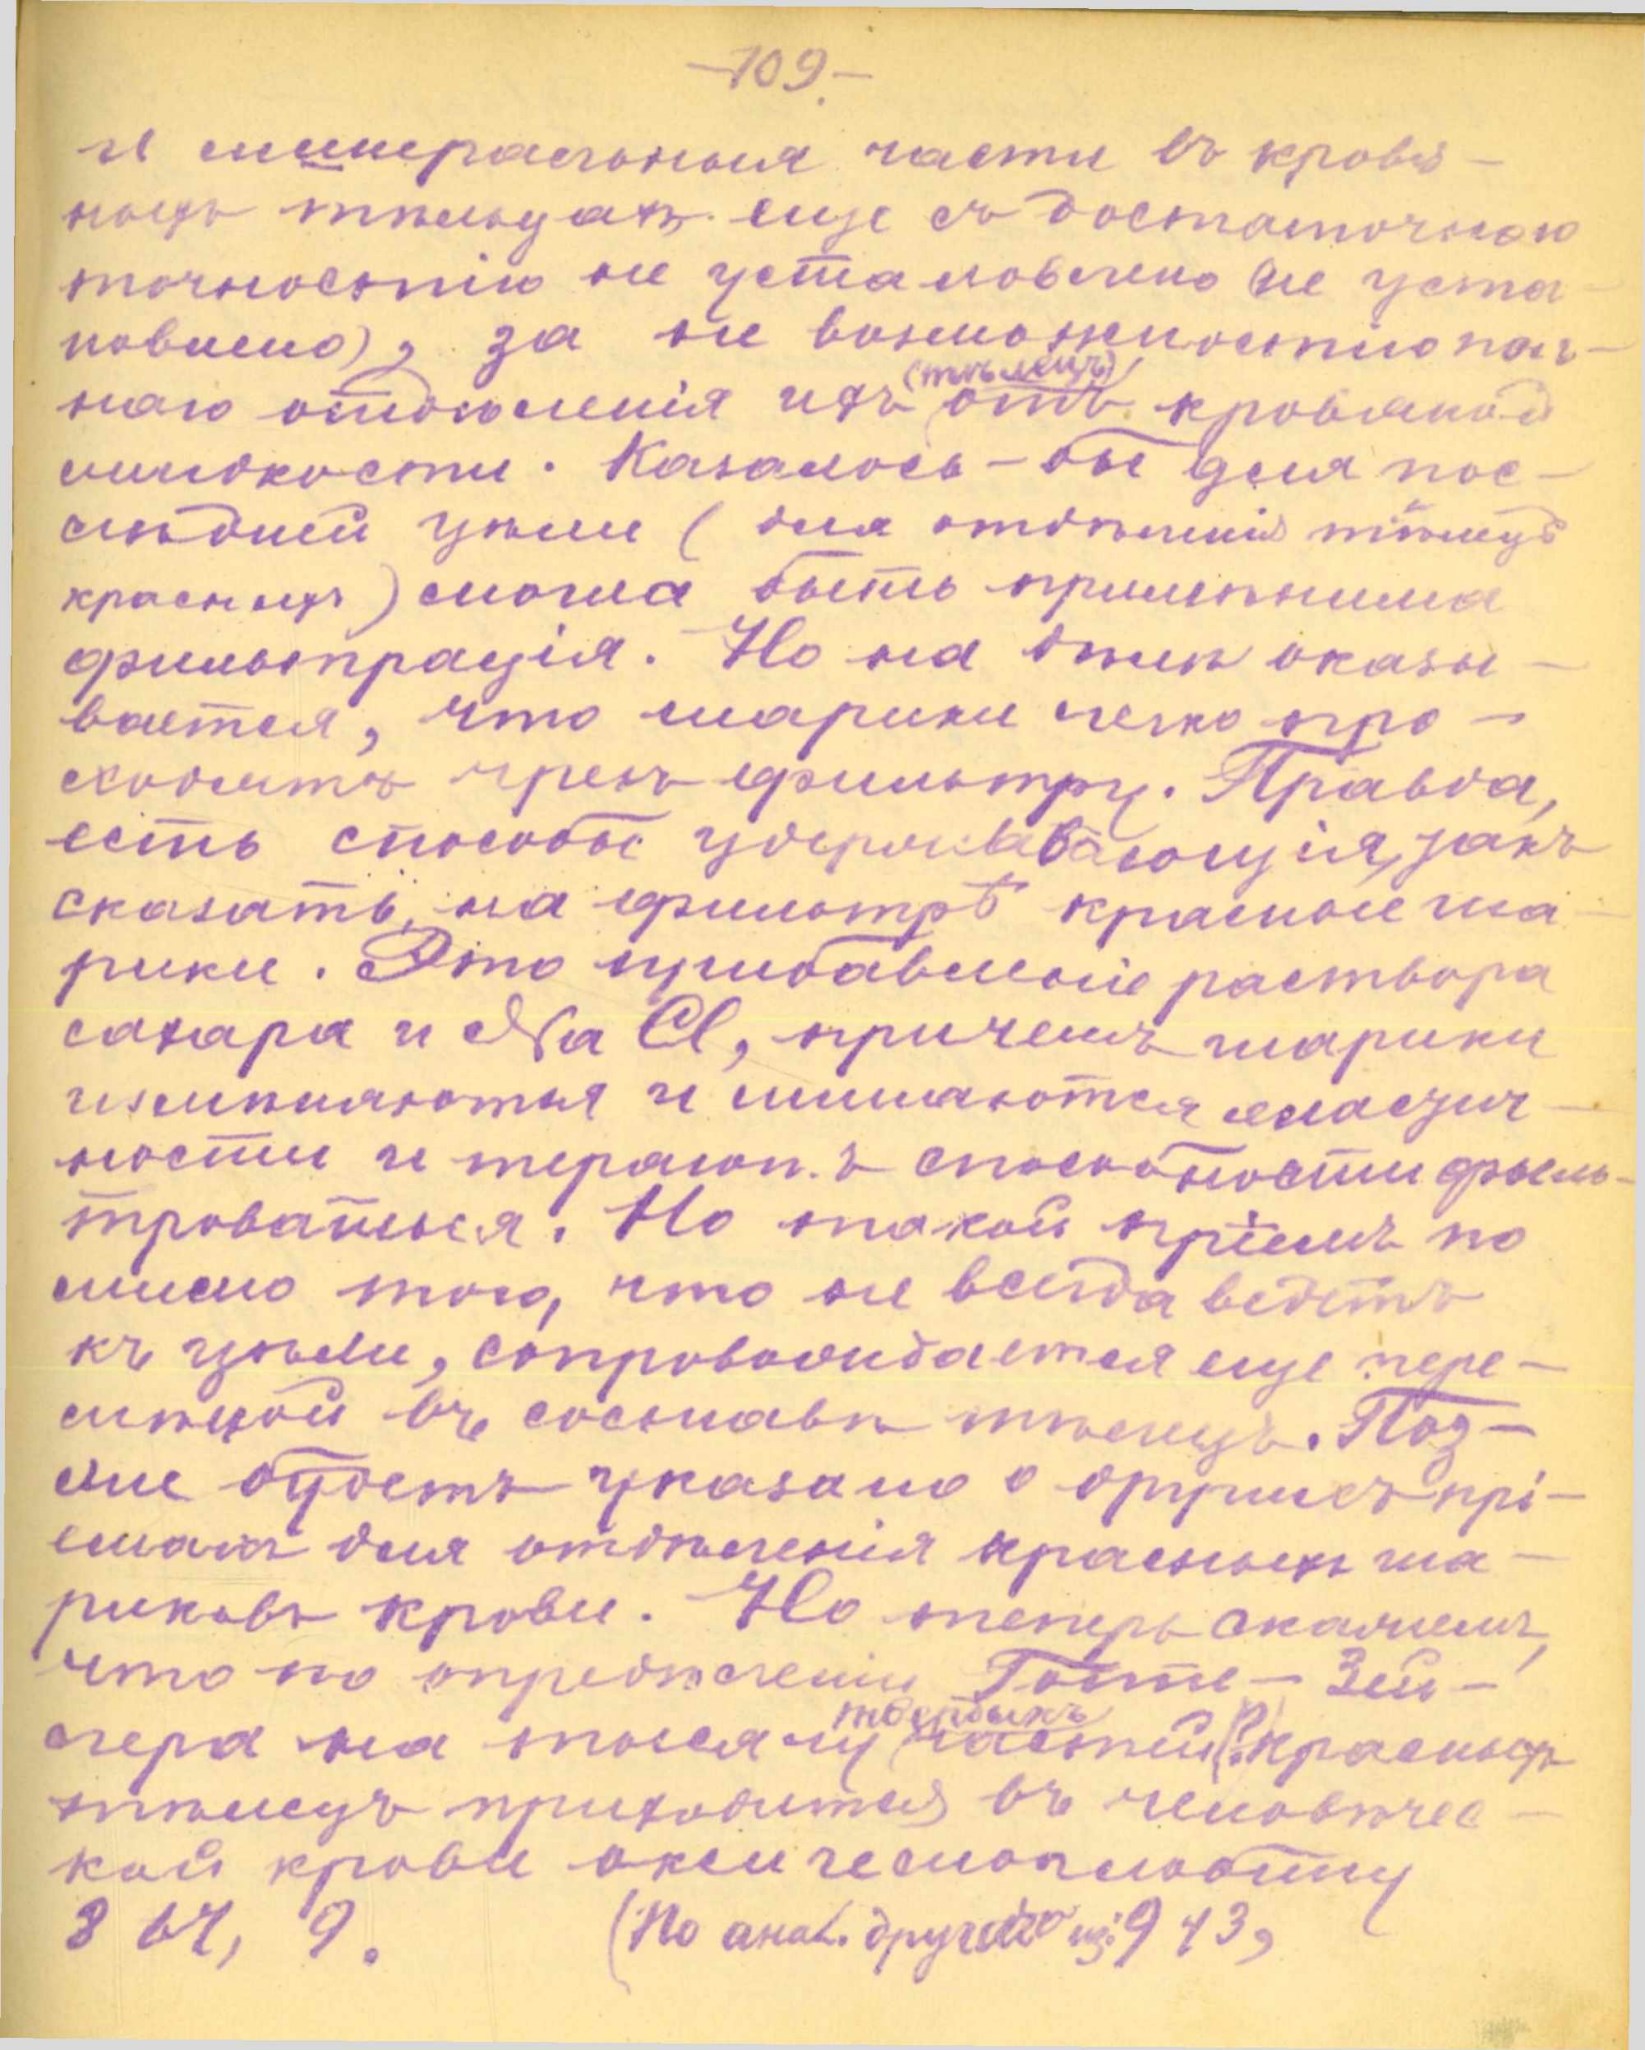 —109.—
и минеральныя части въ кровя-
ныхъ тѣльцахъ еще съ достаточною
точностію не установлено (не уста-
новлено), за не возможностію пол-
наго отдѣленія ихъ (тѣлецъ) отъ кровяной
жидкости. Казалось-бы для пос-
лѣдней цѣли (для отдѣленія тѣлецъ
красныхъ) могла быть примѣнима
фильтрація. Но на дѣлѣ оказы-
вается, что шарики легко про-
сходятъ чрезъ фильтру. Правда,
есть способы удерживающія, такъ
сказать, на фильтрѣ красные ша-
рики. Это прибавленіе раствора
сахара и NaCl, причемъ шарики
измѣняются и лишаются эластич-
ности и теряют.ъ способности филь-
троваться. Но такой пріемъ по
мимо того, что не всегда ведетъ
къ цѣли, сопровождается еще пере-
мѣной въ составѣ тѣлецъ. Поз-
же будетъ указано о другихъ прі-
емахъ для отдѣленія красныхъ ша-
риковъ крови. Но теперь скажемъ,
что по опредѣленію Гоппе-Зей-
лера на тысячу твердыхъ частей (?) красныхъ
тѣлецъ приходится въ человѣчес-
кой крови оксигемоглобину
867, 9. (По анал. другого из: 943,